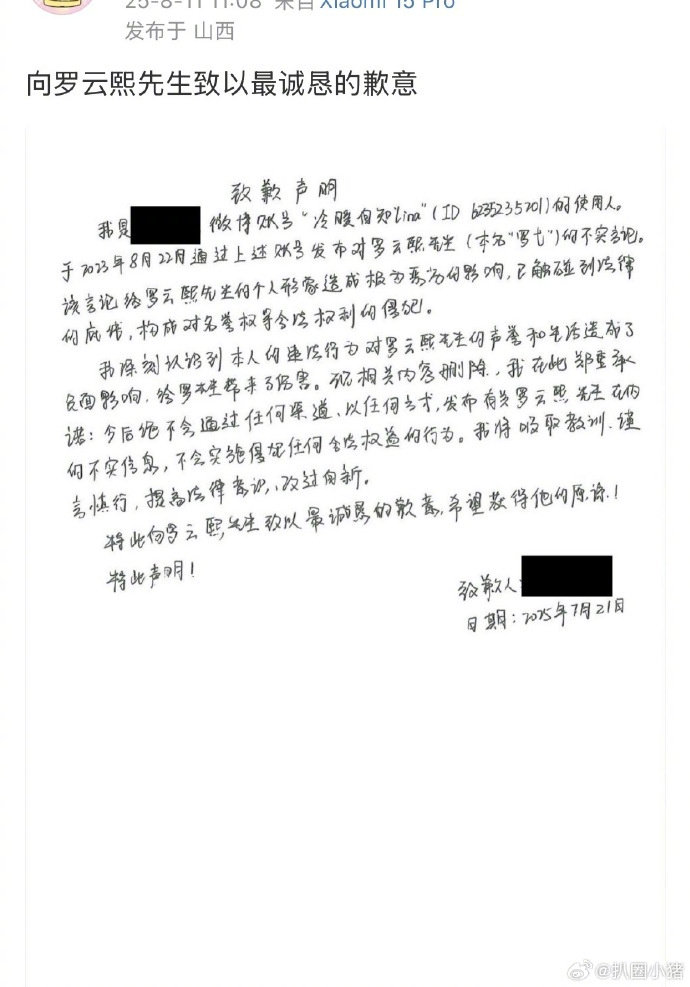 25-8-11 11:08 来自 Xiaomi 15 Pro
发布于 山西
向罗云熙先生致以最诚恳的歉意
致歉声明
我是 微博账号“冷暖自知Lina”(ID 6235235201)的使用人。
于2023年8月22日通过上述账号发布对罗云熙先生(本名“罗弋”)的不实言论。
该言论给罗云熙先生的个人形象造成极为恶劣的影响,已触碰到法律
的底线,构成对名誉权等合法权利的侵犯。
我深刻认识到本人的违法行为对罗云熙先生的声誉和生活造成了
负面影响,给罗先生带来了伤害。现相关内容删除,我在此郑重承
诺:今后绝不会通过任何渠道、以任何方式,发布有关罗云熙先生在内
的不实信息,不会实施侵犯任何合法权益的行为。我将吸取教训、谨
言慎行,提高法律意识,改过自新。
特此向罗云熙先生致以最诚恳的歉意,希望获得他的原谅!
特此声明!
致歉人:
日期:2025年7月21日
@扒圈小猪